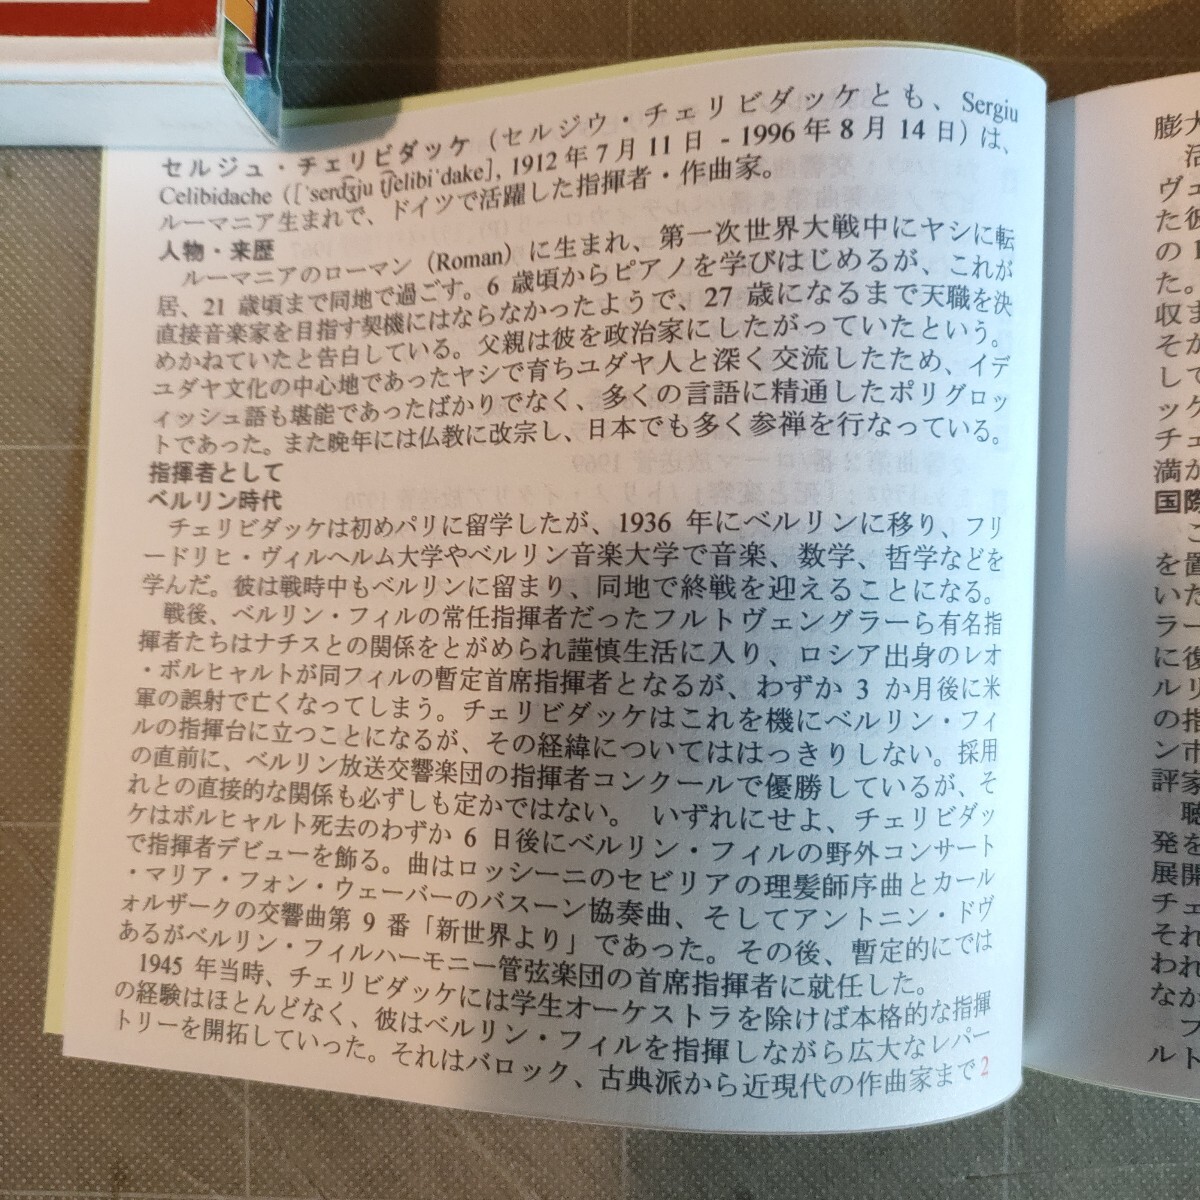 セルジュ・チェリビダッケ（セルジウ・チェリビダッケとも、Sergiu
Celibidache ([ˈserd͡ʒju t͡ʃelibiˈdake], 1912年7月11日 - 1996年8月14日）は、
ルーマニア生まれで、ドイツで活躍した指揮者・作曲家。
人物・来歴
ルーマニアのローマン（Roman）に生まれ、第一次世界大戦中にヤシに転
居、21 歳頃まで同地で過ごす。6 歳頃からピアノを学びはじめるが、これが
直接音楽家を目指す契機にはならなかったようで、27 歳になるまで天職を決
めかねていたと告白している。父親は彼を政治家にしたがっていたという。
ユダヤ文化の中心地であったヤシで育ちユダヤ人と深く交流したため、イデ
ィッシュ語も堪能であったばかりでなく、多くの言語に精通したポリグロッ
トであった。また晩年には仏教に改宗し、日本でも多く参禅を行なっている。
指揮者として
ベルリン時代
チェリビダッケは初めパリに留学したが、1936 年にベルリンに移り、フリ
ードリヒ・ヴィルヘルム大学やベルリン音楽大学で音楽、数学、哲学などを
学んだ。彼は戦時中もベルリンに留まり、同地で終戦を迎えることになる。
戦後、ベルリン・フィルの常任指揮者だったフルトヴェングラーら有名指
揮者たちはナチスとの関係をとがめられ謹慎生活に入り、ロシア出身のレオ
・ボルヒャルトが同フィルの暫定首席指揮者となるが、わずか 3 か月後に米
軍の誤射で亡くなってしまう。チェリビダッケはこれを機にベルリン・フィ
ルの指揮台に立つことになるが、その経緯についてははっきりしない。採用
の直前に、ベルリン放送交響楽団の指揮者コンクールで優勝しているが、そ
れとの直接的な関係も必ずしも定かではない。 いずれにせよ、チェリビダッ
ケはボルヒャルト死去のわずか 6 日後にベルリン・フィルの野外コンサート
で指揮者デビューを飾る。曲はロッシーニのセビリアの理髪師序曲とカール
・マリア・フォン・ウェーバーのバスーン協奏曲、そしてアントニン・ドヴ
ォルザークの交響曲第 9 番「新世界より」であった。その後、暫定的にでは
あるがベルリン・フィルハーモニー管弦楽団の首席指揮者に就任した。
1945 年当時、チェリビダッケには学生オーケストラを除けば本格的な指揮
の経験はほとんどなく、彼はベルリン・フィルを指揮しながら広大なレパー
トリーを開拓していった。それはバロック、古典派から近現代の作曲家まで2
膨大
活
ヴェ
た彼
の
た。
収ま
そか
して
ッケ
チェ
満が
国際
こ
を置
いた
ラー
に復
ルリ
の指
ン市
評家
聴
発を
展開
チェ
それ
われ
なか
フ
ルト